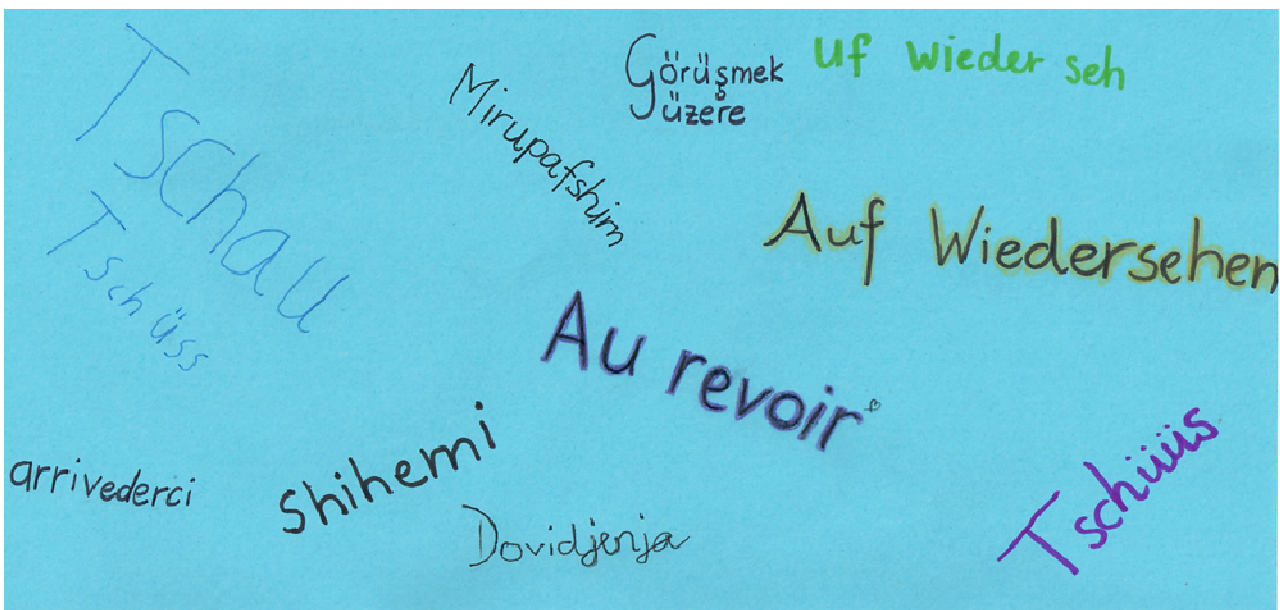 Tschau
Tschüss
Mirupafshim
Görüşmek
üzere
uf wieder seh
Auf Wiedersehen
Au revoir
arrivederci
Shihemi
Dovidjenja
Tschüüüs